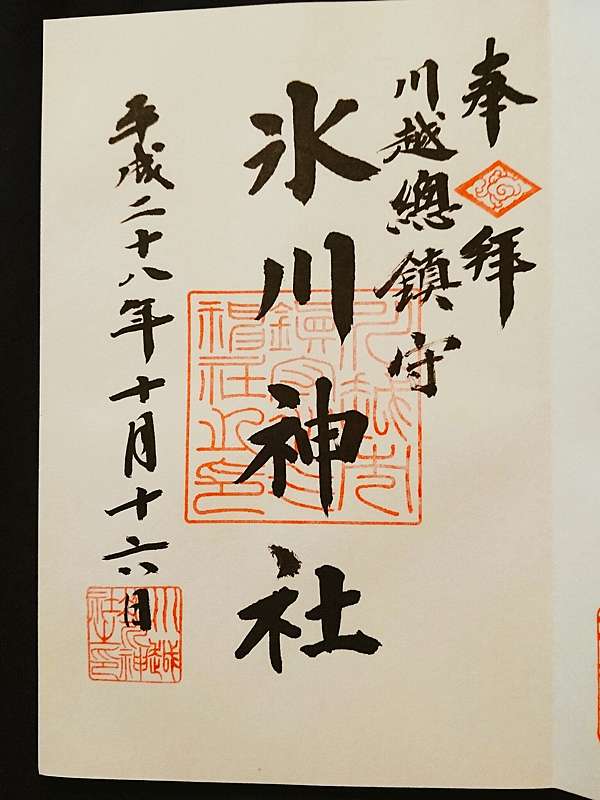 奉拝
川越總鎮守
氷川神社
平成二十八年十月十六日